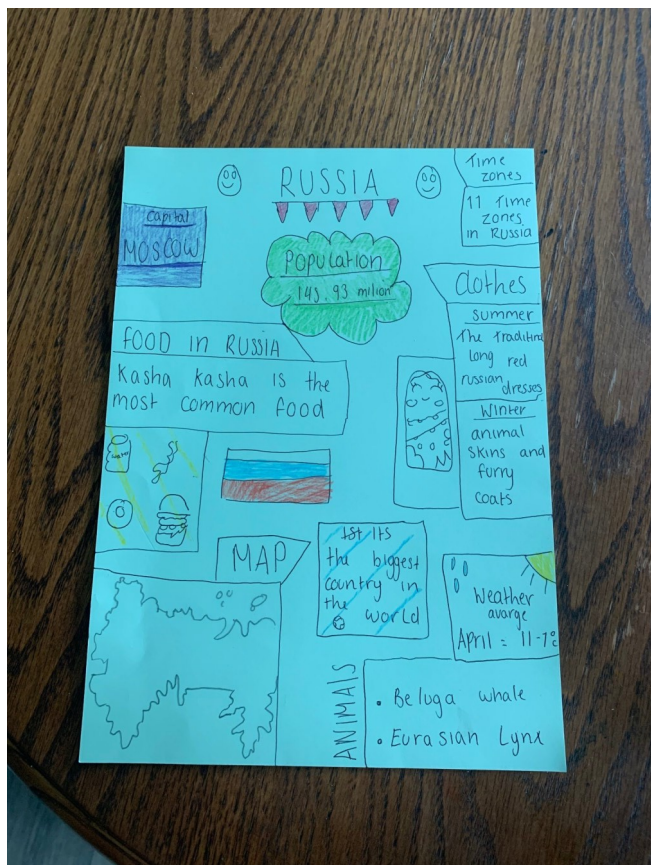 RUSSIA
Time
zones
11 Time
zones
in Russia
Capital
MOSCOW
Population
143.93 milion
Clothes
summer
The traditinal
long red
russian dresses
Winter
animal
skins and
furry
coats
FOOD IN RUSSIA
Kasha kasha is the
most common food
1st Its
the biggest
country in
the world
MAP
Weather
avarge
April = 11-7°
ANIMALS
• Beluga whale
• Eurasian Lynx